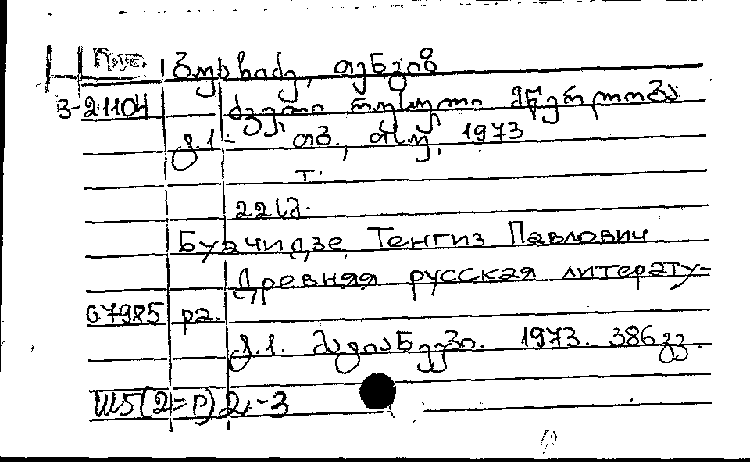 Прус. ბუაჩიძე, თენგიზ
З-21104 ძველი რუსული მწერლობა
წ.1- თბ., თსუ, 1973
Т.
221გ.
Буачидзе, Тенгиз Павлович
Древняя русская литерату-
67985 ра.
წ.1. 1973. 386გვ.
Ш5(2=Р)2,-3